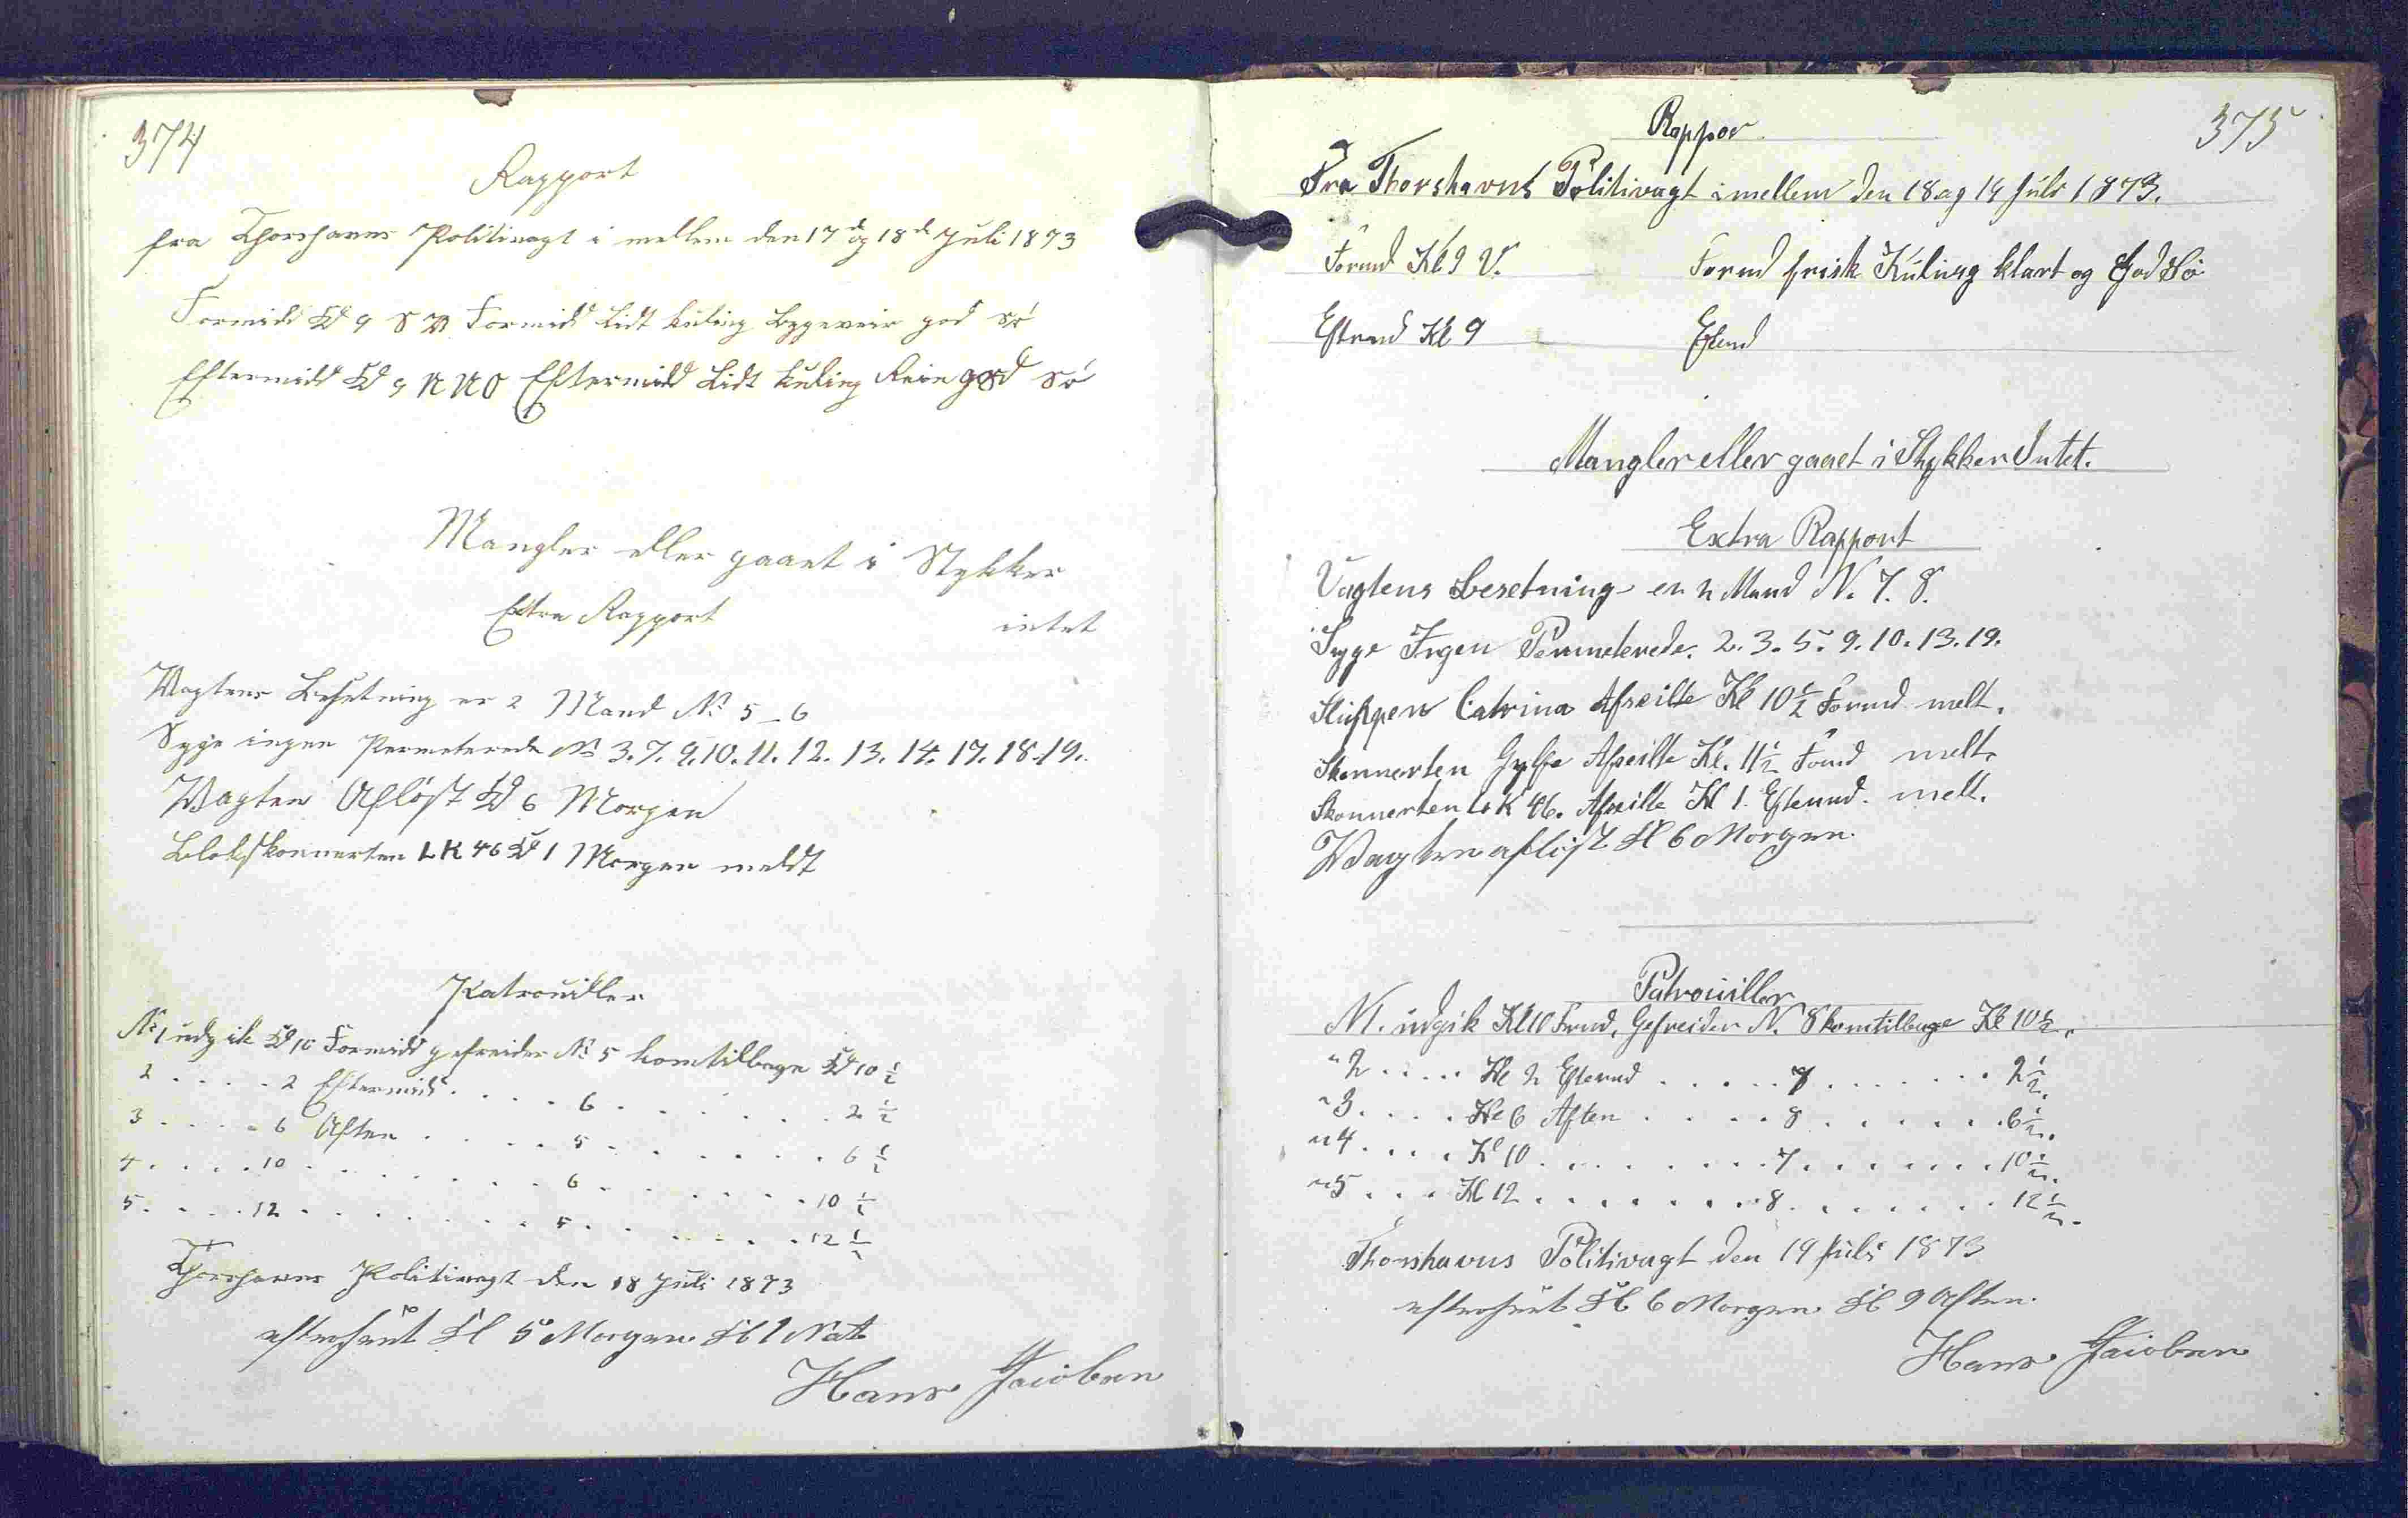 374
Rapport
fra Thorshavns Politivagt i mellem den 17d og 18d Juli 1873
Formidd Kl 9 S V. Formidd Lidt kuling Bygeveir god Sö
Eftermidd Kl 9 N N O Eftermidd Lidt kuling Rein god Sö
Mangler eller gaaet i Stykker
intet
Extra Rapport
Vagtens Besetning er 2 Mand No 5 - 6
Syge ingen Permeterede No 3. 7. 9. 10. 11. 12. 13. 14. 17. 18. 19.
Vagten Aflöst Kl 6 Morgen
Blokskonnerten LK 46 Kl 1 Morgen meldt
Patrouiller
No 1 udgik Kl 10 Formidd gefreider No 5 komtilbage Kl 10 1/2
2 . . . . 2 Eftermid . . . . 6 . . . . . . . 2 1/2
3 . . . . 6 Aften . . . . 5 . . . . . . . 6 1/2
4 . . . . 10 . . . . . . . 6 . . . . . . . 10 1/2
5 . . . . 12 . . . . . . . 5 . . . . . . . 12 1/2
Thorshavns Politivagt den 18 Juli 1873
efterseet Kl 5 Morgen Kl 1 Nat
Hans Jacobsen
375
Rappor
Fra Thorshavns Politivagt imellem den 18 og 19 Juli 1873.
Formd Kl 9 V. Formd frisk Kuling klart og God Sö
Eftrmd Kl 9 Eftmd
Mangler eller gaaet i Stykker Intet.
Extra Rapport
Vagtens Besetning er 2 Mand N. 7. 8.
Syge Ingen Permeterede. 2. 3. 5. 9. 10. 13. 19.
Sluppen Catrina Afseilte Kl 10 1/2 Formd melt.
Skonnerten Gylfe Afseilte Kl. 11 1/2 Fomd melt.
Skonnerten LK 46. Afseilte Kl 1. Eftermd. melt.
Vagten aflöst Kl 6 Morgen.
Patrouiller
N1. udgik Kl 10 Frmd, Gefreider N. 8 komtilbage Kl 10 1/2.
" 2 . . . . Kl 2 Eftermd . . . . . 7 . . . . . . . 2 1/2.
" 3 . . . . Kl 6 Aften . . . . . 8 . . . . . . . 6 1/2.
" 4 . . . . Kl 10 . . . . . . . 7 . . . . . . . 10 1/2.
" 5 . . . . Kl 12 . . . . . . . 8 . . . . . . . 12 1/2.
Thorshavns Politivagt den 19 Juli 1873
efterseet Kl 6 Morgen Kl 9 Aften.
Hans Jacobsen